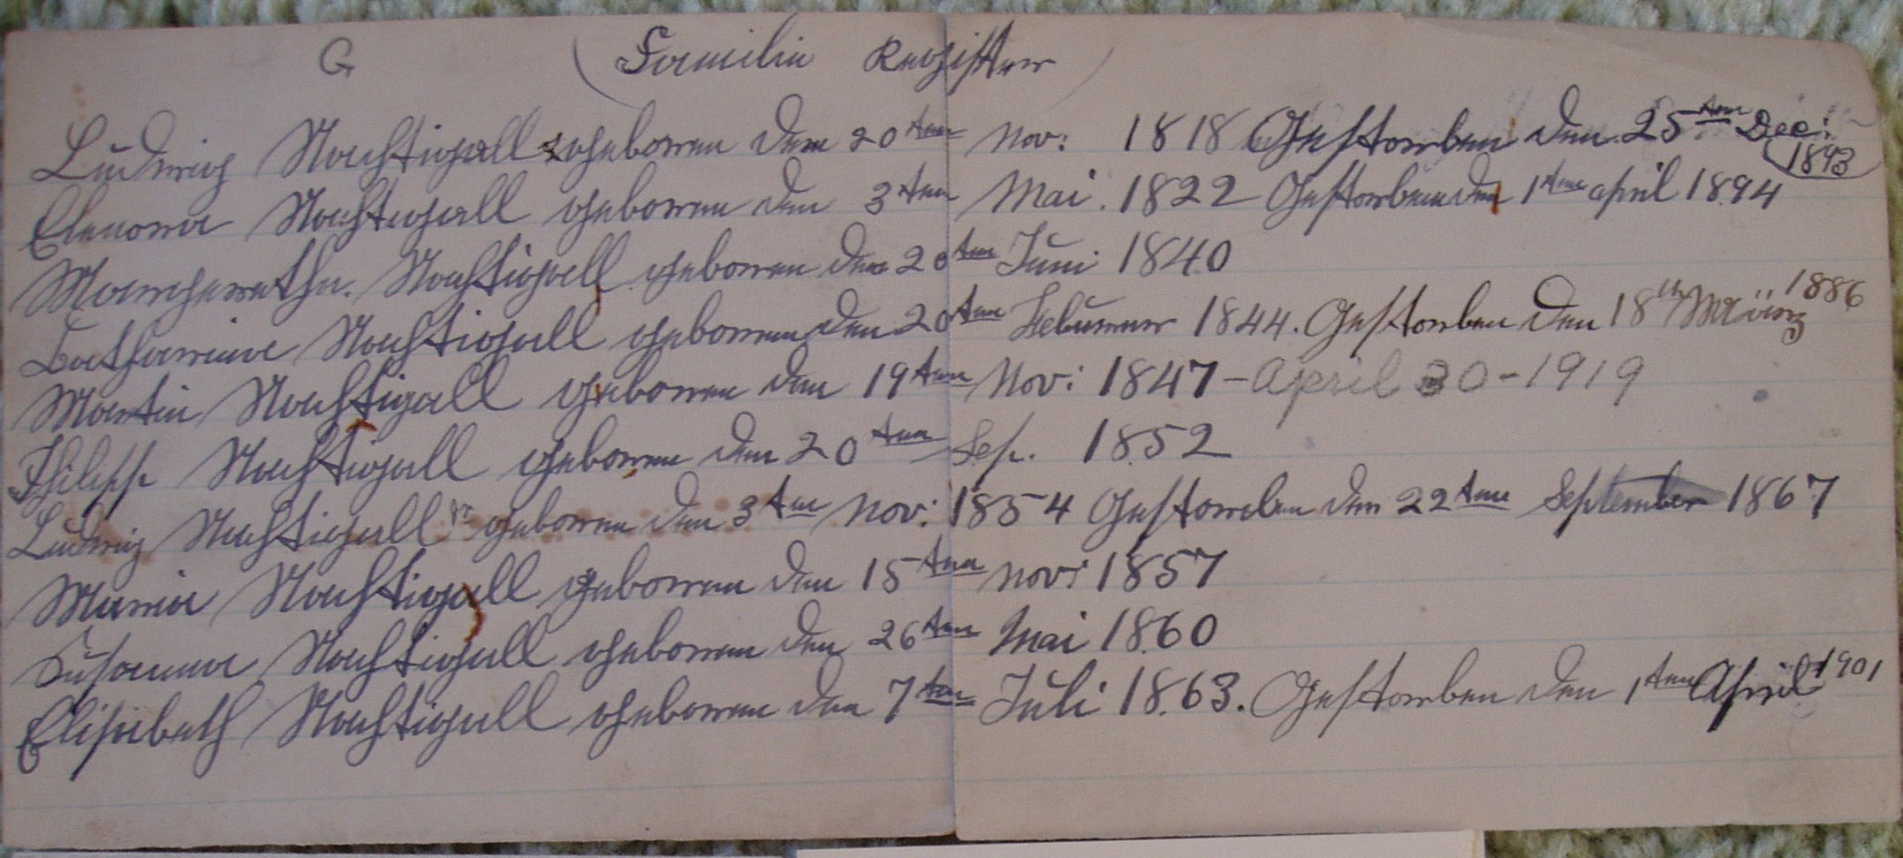 G (Familie Register)
Ludwig Nachtigall geboren den 20ten Nov: 1818 Gestorben den 25ten Dec: 1893
Elenora Nachtigall geboren den 3ten Mai. 1822 Gestorben den 1ten april 1894
Margeretha. Nachtigall geboren den 20ten Juni 1840
Catharina Nachtigall geboren den 20ten Februar 1844. Gestorben den 18th März 1886
Martin Nachtigall geboren den 19ten Nov: 1847 - April 30 - 1919
Philipp Nachtigall geboren den 20ten Sep. 1852
Ludwig Nachtigall jr geboren den 3ten Nov: 1854 Gestorben den 22ten September 1867
Maria Nachtigall geboren den 15ten Nov: 1857
Susanna Nachtigall geboren den 26ten Mai 1860
Elisabeth Nachtigall geboren den 7ten Juli 1863. Gestorben den 1ten April 1901